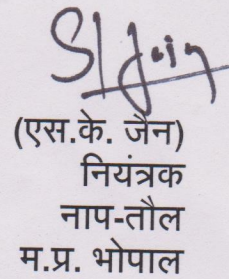 (एस.के. जैन)
नियंत्रक
नाप-तौल
म.प्र. भोपाल